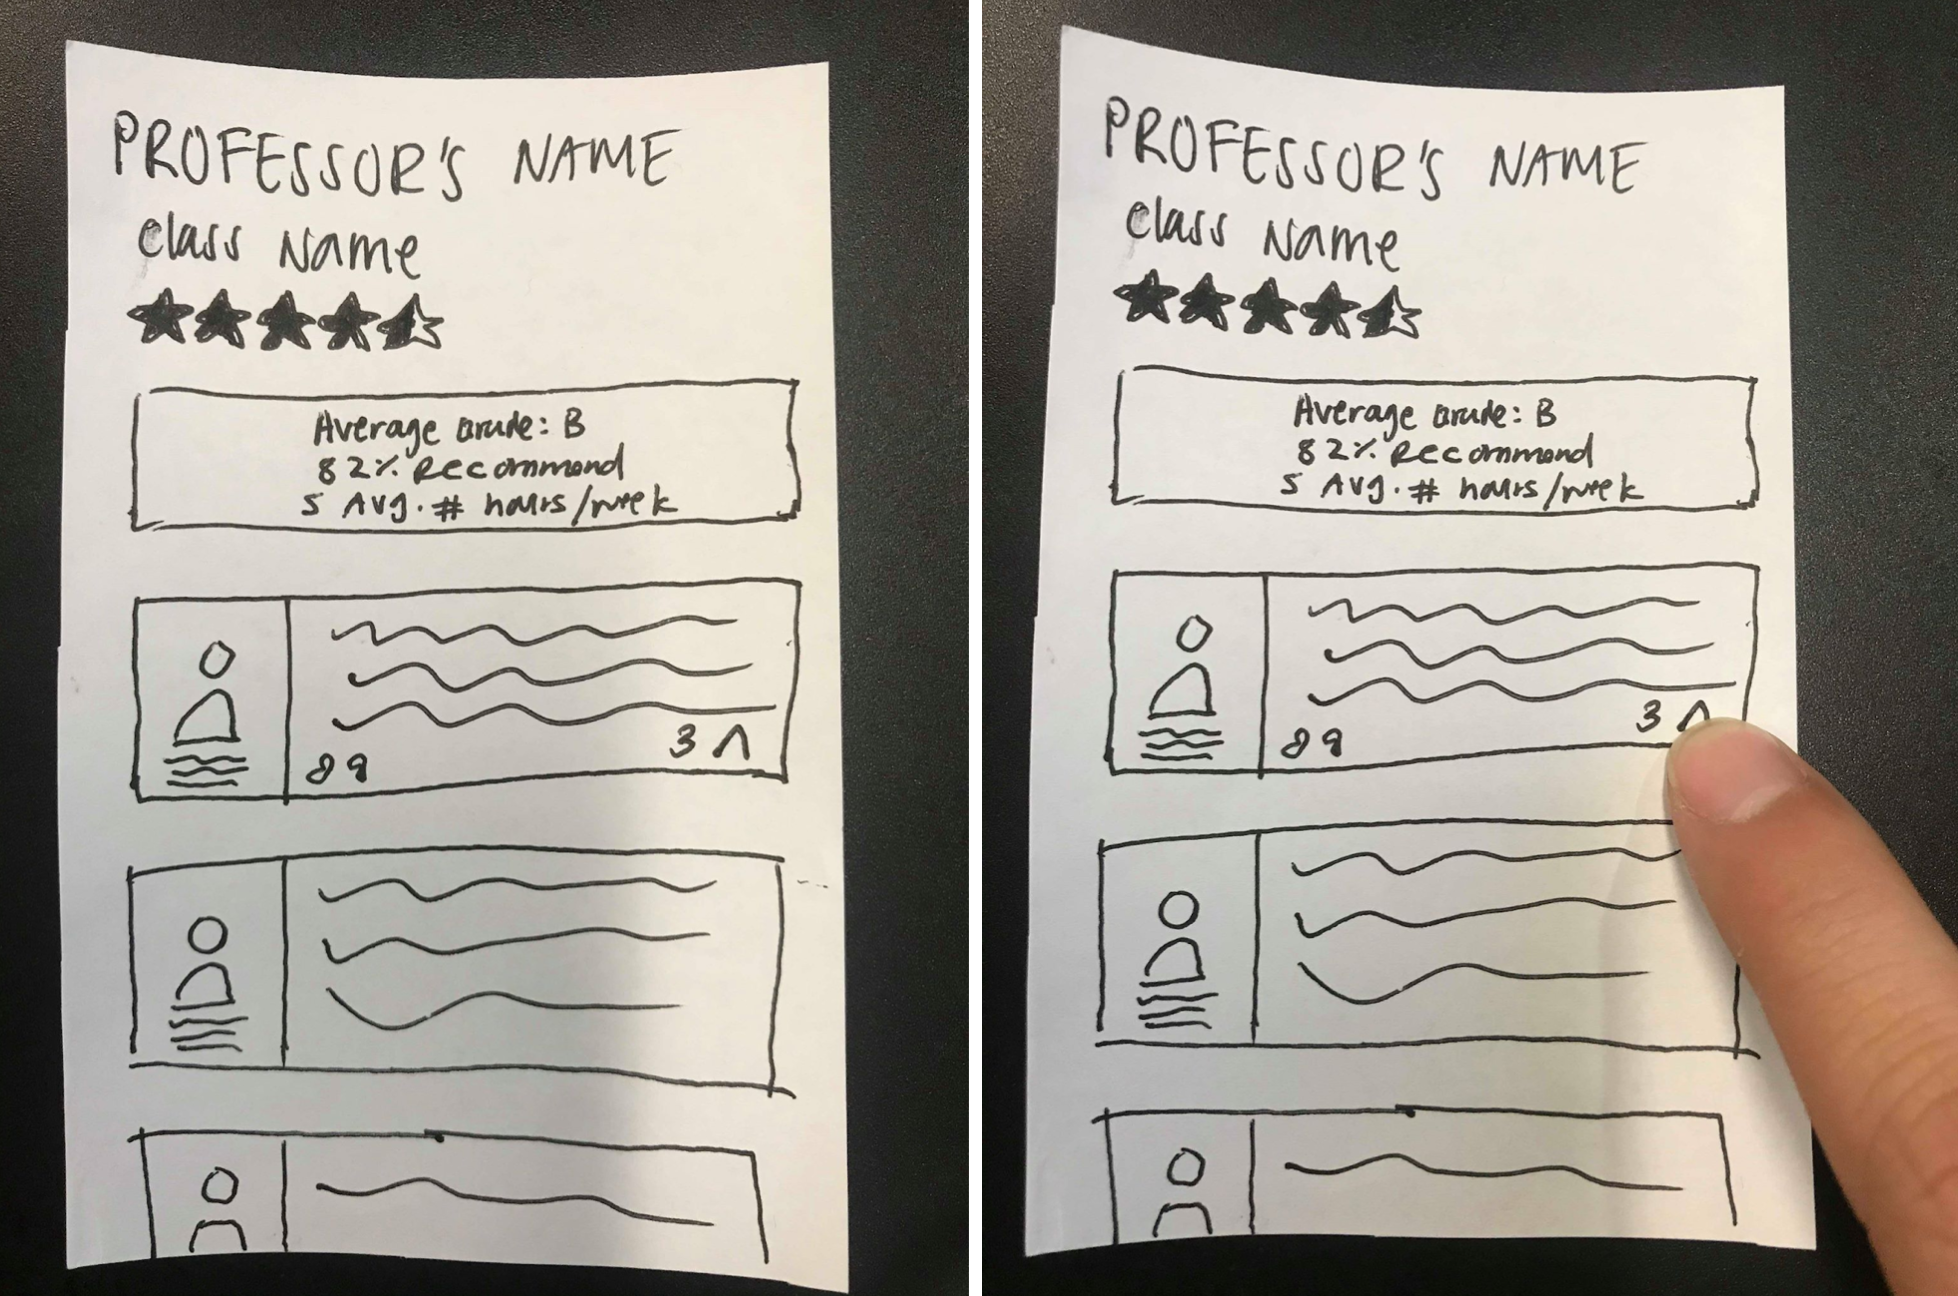 PROFESSOR'S NAME
Class Name
Average Grade: B
82% Recommend
5 Avg. # hours/week
3
PROFESSOR'S NAME
Class Name
Average Grade: B
82% Recommend
5 Avg. # hours/week
3